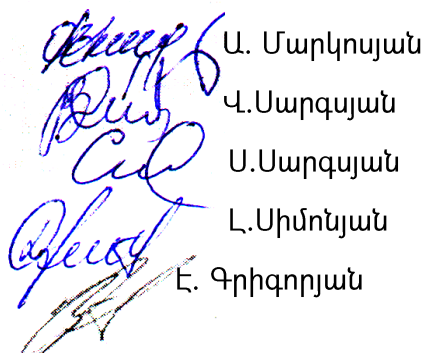 Ա. Մարկոսյան
Վ.Սարգսյան
Ս.Սարգսյան
Լ.Սիմոնյան
Է. Գրիգորյան